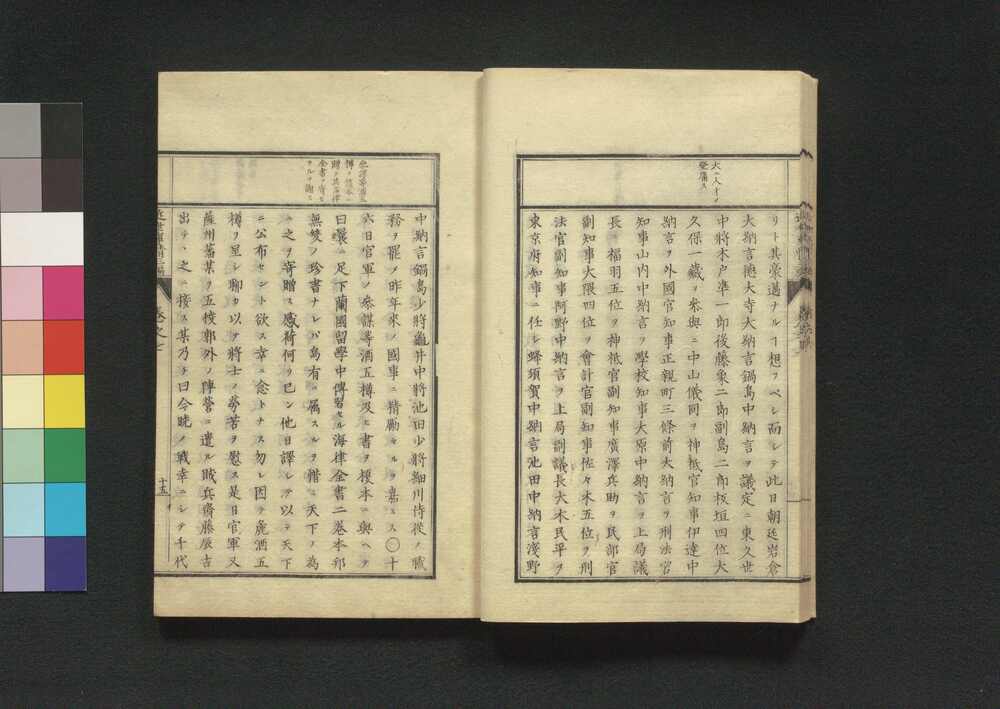 大ニ人才ヲ
登庸ス
リト其豪邁ナルヿ想フベシ而シテ此日朝廷岩倉
大納言德大寺大納言鍋島中納言ヲ議定ニ東久世
中將木戸準一郎後藤象二郎副島二郎板垣四位大
久保一藏ヲ參與ニ中山儀同ヲ神祇官知事伊達中
納言ヲ外國官知事正親町三條前大納言ヲ刑法官
知事山内中納言ヲ學校知事大原中納言ヲ上局議
長ニ福羽五位ヲ神祇官副知事廣澤兵助ヲ民部官
副知事大隈四位ヲ會計官副知事佐々木五位ヲ刑
法官副知事阿野中納言ヲ上局副議長大木民平ヲ
東京府知事ニ任シ蜂須賀中納言池田中納言淺野
中納言鍋島少將龜井中將池田少將細川侍從ノ職
務ヲ罷メ昨年來ノ國事ニ精勵セルヲ嘉ミス〇十
六日官軍ノ參謀等酒五樽及ヒ書ヲ榎本ニ與ヘテ
曰曩ニ足下蘭國留學中傳習セル海律全書二卷本邦
無雙ノ珍書ナレバ烏有ニ屬スルヲ惜ミ天下ノ為
ニ之ヲ寄贈ス感荷何ソ已ン他日譯シテ以テ天下
ニ公布セント欲ス幸ニ念トナス勿レ因テ麁酒五
樽ヲ呈シ聊カ以テ將士ノ勞苦ヲ慰ス是日官軍又
薩州藩某ヲ五稜郭外ノ陣營ニ遣ル賊兵齋藤辰吉
出テ、之ニ接ス某乃チ曰今曉ノ戰幸ニシテ千代
卷之七
十五